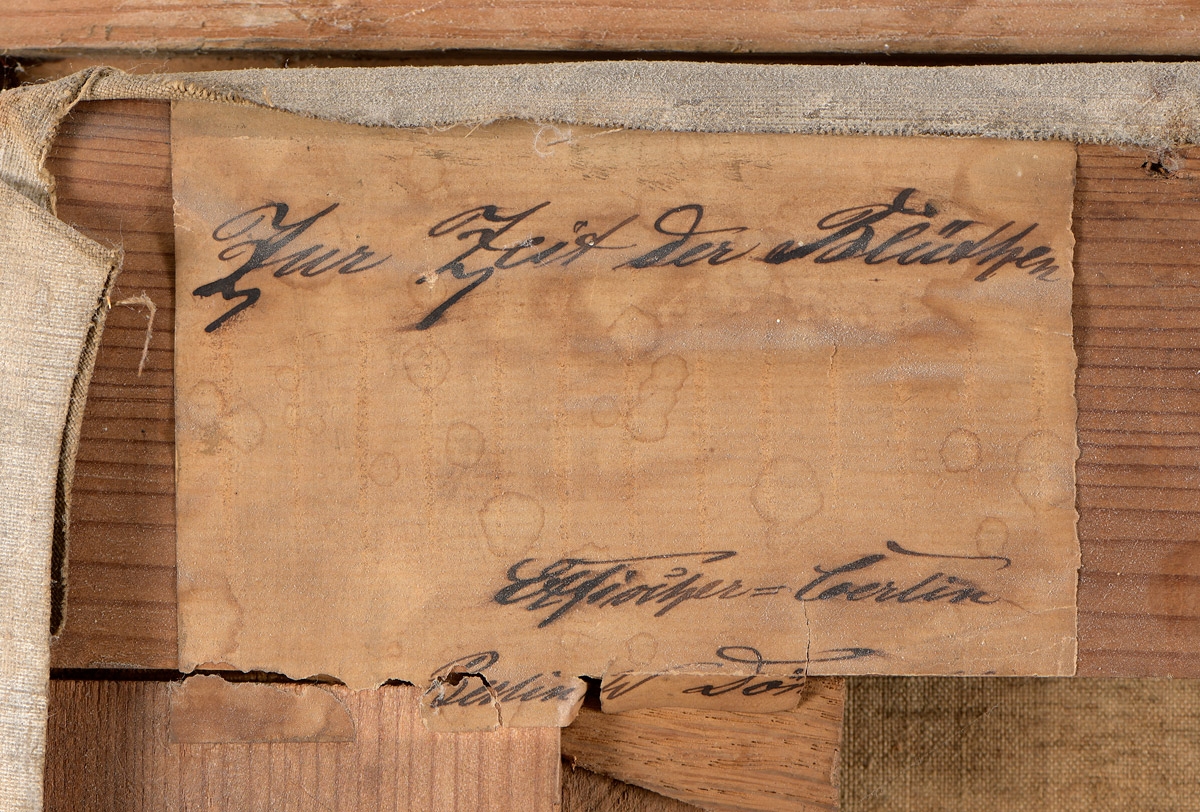 Zur Zeit der Blüthen
E Fischer=Coerlin
Berlin W Dör